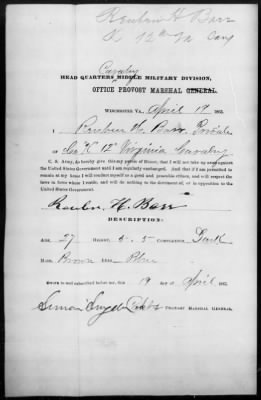 Reuben H Barr
K 12th Va Cavy
Cavalry
HEAD QUARTERS MIDDLE MILITARY DIVISION,
OFFICE PROVOST MARSHAL GENERAL.
WINCHESTER VA., April 19 1865.
I Reuben H. Barr, Private
of Co. "K" 12" Virginia Cavalry
C. S. Army, do hereby give this my parole of Honor, that I will not take up arms against
the United States Government until I am regularly exchanged. And that if I am permitted to
remain at my home I will conduct myself as a good and peaceable citizen, and will respect the
laws in force where I reside, and will do nothing to the detriment of, or in opposition to the
United States Government.
Reuben H. Barr
DESCRIPTION:
AGE, 27 HEIGHT, 5-5 COMPLEXION Dark
HAIR, Brown EYES Blue
SWORN to and subscribed before me, this 19 day of April 1865.
PROVOST MARSHAL GENERAL.